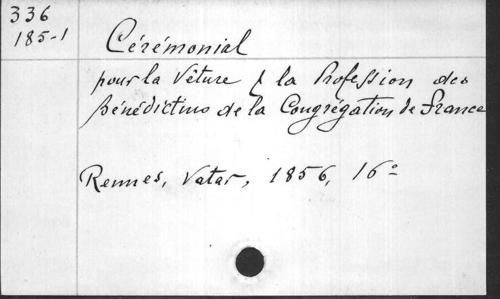 336
185-1
Cérémonial
pour la Vêture & la Profession des
Bénédictins de la Congrégation de France
Rennes, Vatar, 1856, 16°